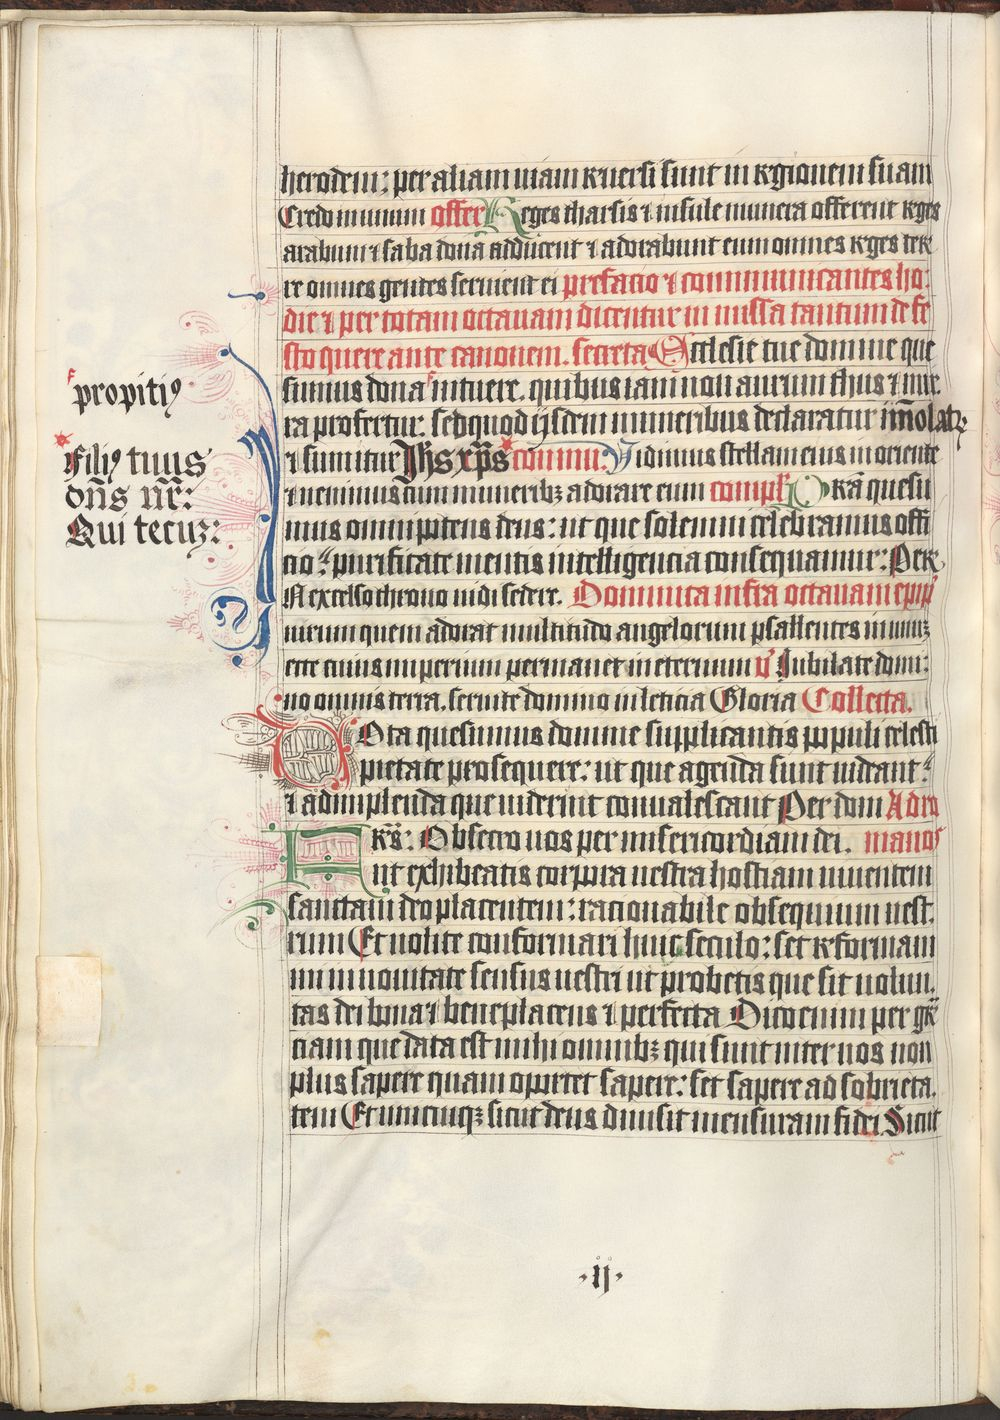 herodem: per aliam uiam reuersi sunt in regionem suam
Credo in unum offer Reges tharsis ⁊ insule munera offerent reges
arabum ⁊ saba dona adducent ⁊ adorabunt eum omnes reges ter
re omnes gentes seruient ei prefacio ⁊ communicantes ho:
die ⁊ per totam octauam dicentur in missa tantum de fe
sto quere ante canonem. secreta Ecclesie tue domine que
sumus dona intuere. quibus iam non aurum thus ⁊ mir
ra profertur: sed quod ijsdem muneribus declaratur im̄olatꝛ
⁊ sumitur Jhs xp̄s com̄u: Vidimus stellam eius in oriente
⁊ uenimus cum muneribꝫ adorare eum compl̄ Presta quesu
mus omnipotens deus: ut que solemni celebramus offi
cio: purificate mentis intelligencia consequamur: Per
IN excelso throno uidi sedere. Dominica infra octauam epyp̄
uirum quem adorat multitudo angelorum psallentes in unū
ecce cuius imperium permanet in eternum v̄ Iubilate domi:
no omnis terra. seruite domino in leticia Gloria Collecta.
VOta quesumus domine supplicantis populi celesti
pietate prosequere: ut que agenda sunt uideant:
⁊ adimplenda que uiderint conualescant Per dom̄ Ad ro
FRs: Obsecro uos per misericordiam dei. manos
ut exhibeatis corpora uestra hostiam uiuentem
sanctam deo placentem: racionabile obsequium uest.
rum Et nolite conformari huic seculo: set reformam
ini in nouitate sensus uestri ut probetis que sit uolun.
tas dei bona ⁊ beneplacens ⁊ perfecta Dico enim per gr̄a
ciam que data est mihi omnibꝫ qui sunt inter uos non
plus sapere quam oportet sapere: set sapere ad sobrieta.
tem Et unicuiqꝫ sicut deus diuisit mensuram fidei Sicut
propitiꝰ
Filiꝰ tuus
dn̄s nr̄:
Qui tecuꝫ:
·ij·